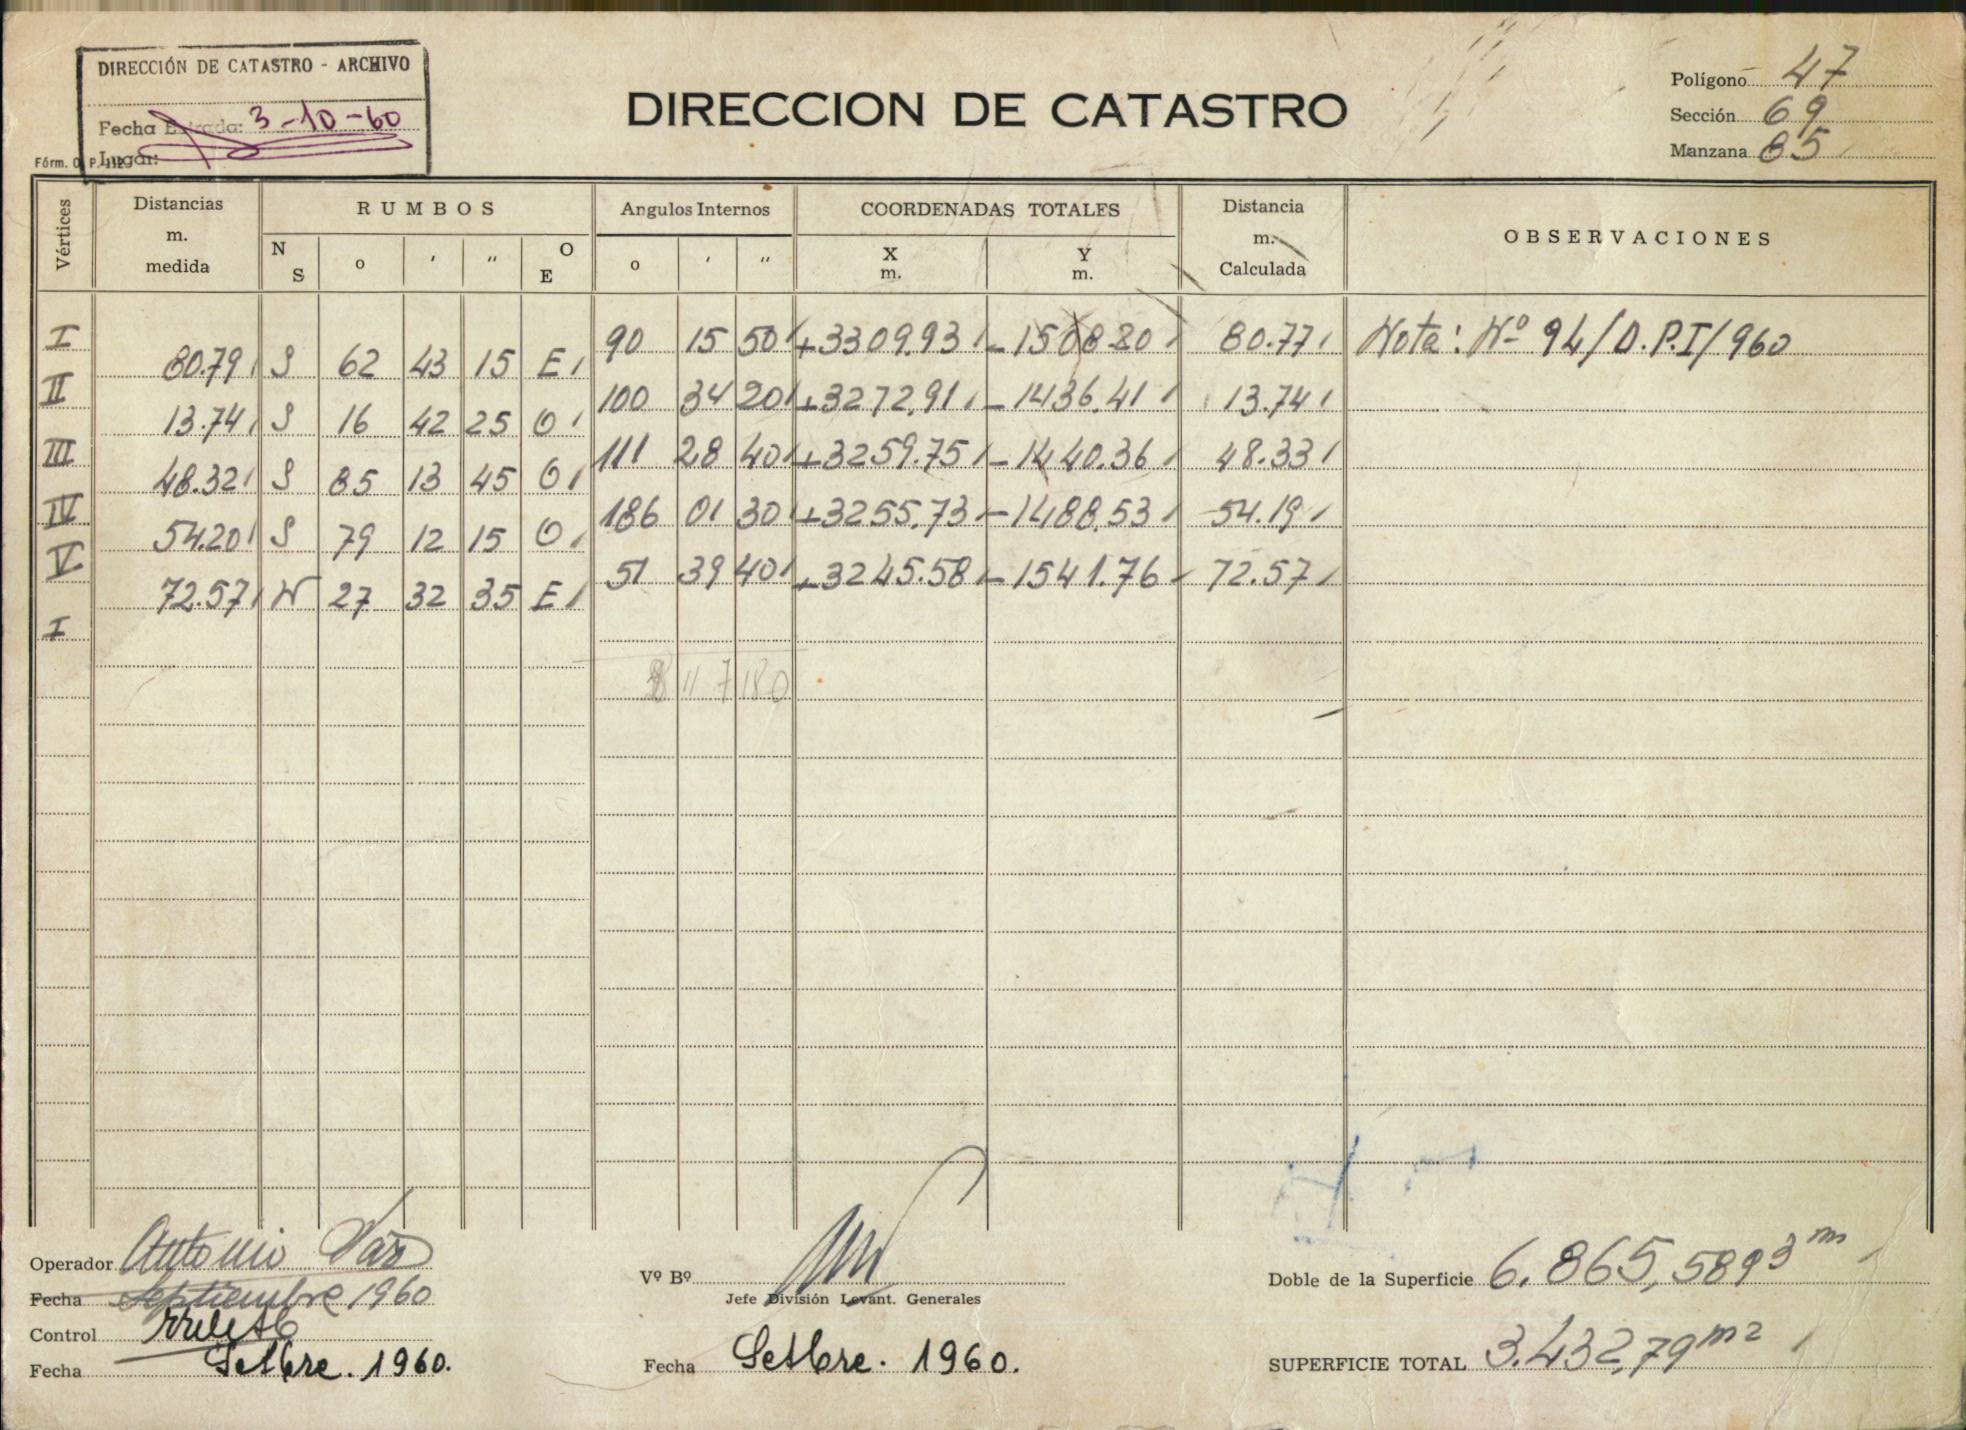 DIRECCIÓN DE CATASTRO - ARCHIVO
Fecha Entrada: 3-10-60
Lugar:
DIRECCION DE CATASTRO
Polígono 47
Sección 69
Manzana 85
Vértices
Distancias
m.
medida
RUMBOS
N
S
o
'
"
O
E
Angulos Internos
o
'
"
COORDENADAS TOTALES
X
m.
Y
m.
Distancia
m.
Calculada
OBSERVACIONES
I 90 15 50 +3309.93 -1508.20 80.77 Nota: Nº 94/D.P.I/960
80.79 S 62 43 15 E
II 100 34 20 +3272.91 -1436.41 13.74
13.74 S 16 42 25 O
III 111 28 40 +3259.75 -1440.36 48.33
48.32 S 85 13 45 O
IV 186 01 30 +3255.73 -1488.53 54.19
54.20 S 79 12 15 O
V 51 39 40 +3245.58 -1541.76 72.57
72.57 N 27 32 35 E
I
11 7 180
Operador Antonio
Fecha Septiembre 1960
Control
Fecha Setbre. 1960.
Vº Bº
Jefe División Levant. Generales
Fecha Setbre. 1960.
Doble de la Superficie 6.865,5893 m
SUPERFICIE TOTAL 3.432,79 m2